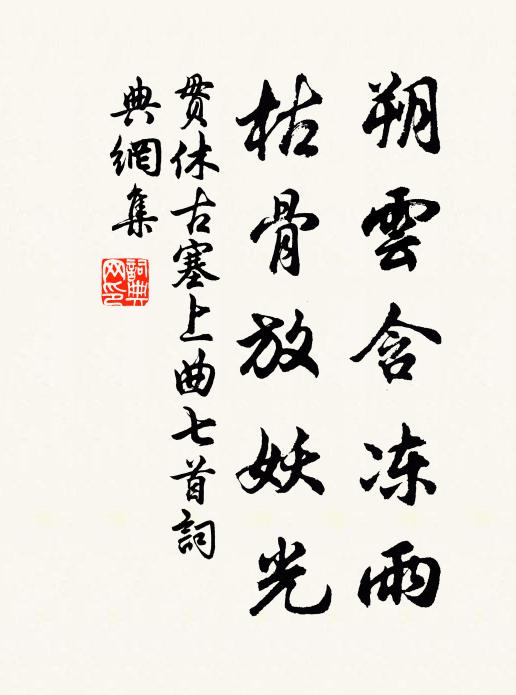 朔雲含冻雨
枯骨放妖光
贯休古塞上曲七首詞
典網集
詞典
网印